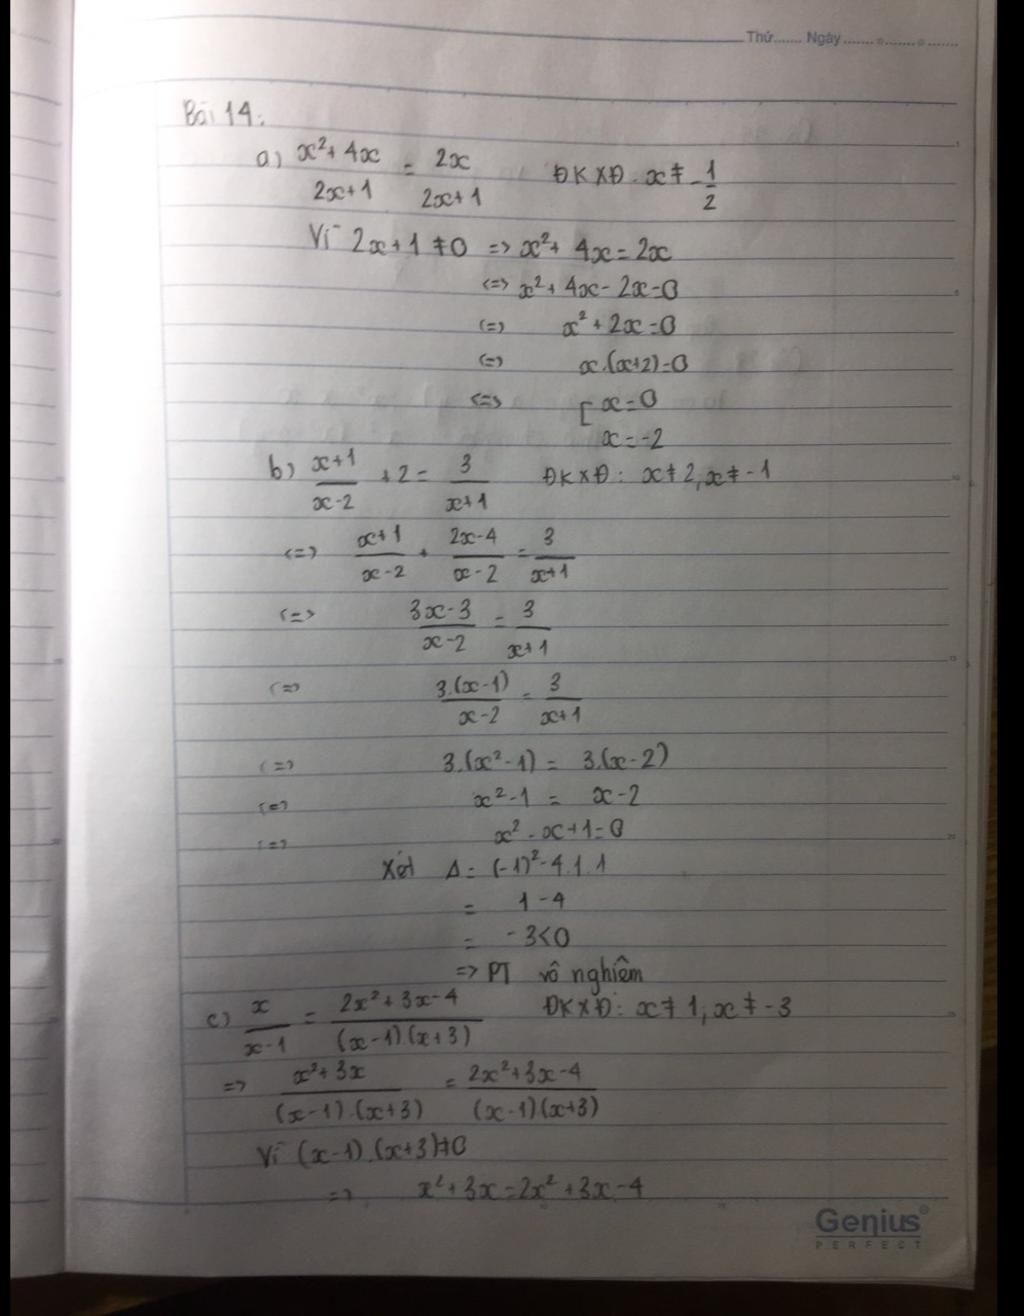 Thứ....... Ngày.......................
Bài 14:
a) (x²+4x)/(2x+1) = 2x/(2x+1) ĐKXĐ: x ≠ -1/2
Vì 2x+1 ≠ 0 => x²+ 4x = 2x
<=> x²+ 4x - 2x = 0
<=> x² + 2x = 0
<=> x.(x+2) = 0
<=> [ x = 0
x = -2
b) (x+1)/(x-2) + 2 = 3/(x+1) ĐKXĐ: x ≠ 2, x ≠ -1
<=> (x+1)/(x-2) + (2x-4)/(x-2) = 3/(x+1)
<=> (3x-3)/(x-2) = 3/(x+1)
<=> 3.(x-1)/(x-2) = 3/(x+1)
<=> 3.(x²-1) = 3.(x-2)
<=> x²-1 = x-2
<=> x² - x + 1 = 0
Xét Δ = (-1)² - 4.1.1
= 1 - 4
= -3 < 0
=> PT vô nghiệm
c) x/(x-1) = (2x²+3x-4)/((x-1).(x+3)) ĐKXĐ: x ≠ 1, x ≠ -3
=> (x²+3x)/((x-1).(x+3)) = (2x²+3x-4)/((x-1)(x+3))
Vì (x-1).(x+3) ≠ 0
=> x²+3x = 2x²+3x-4
Genius
PERFECT